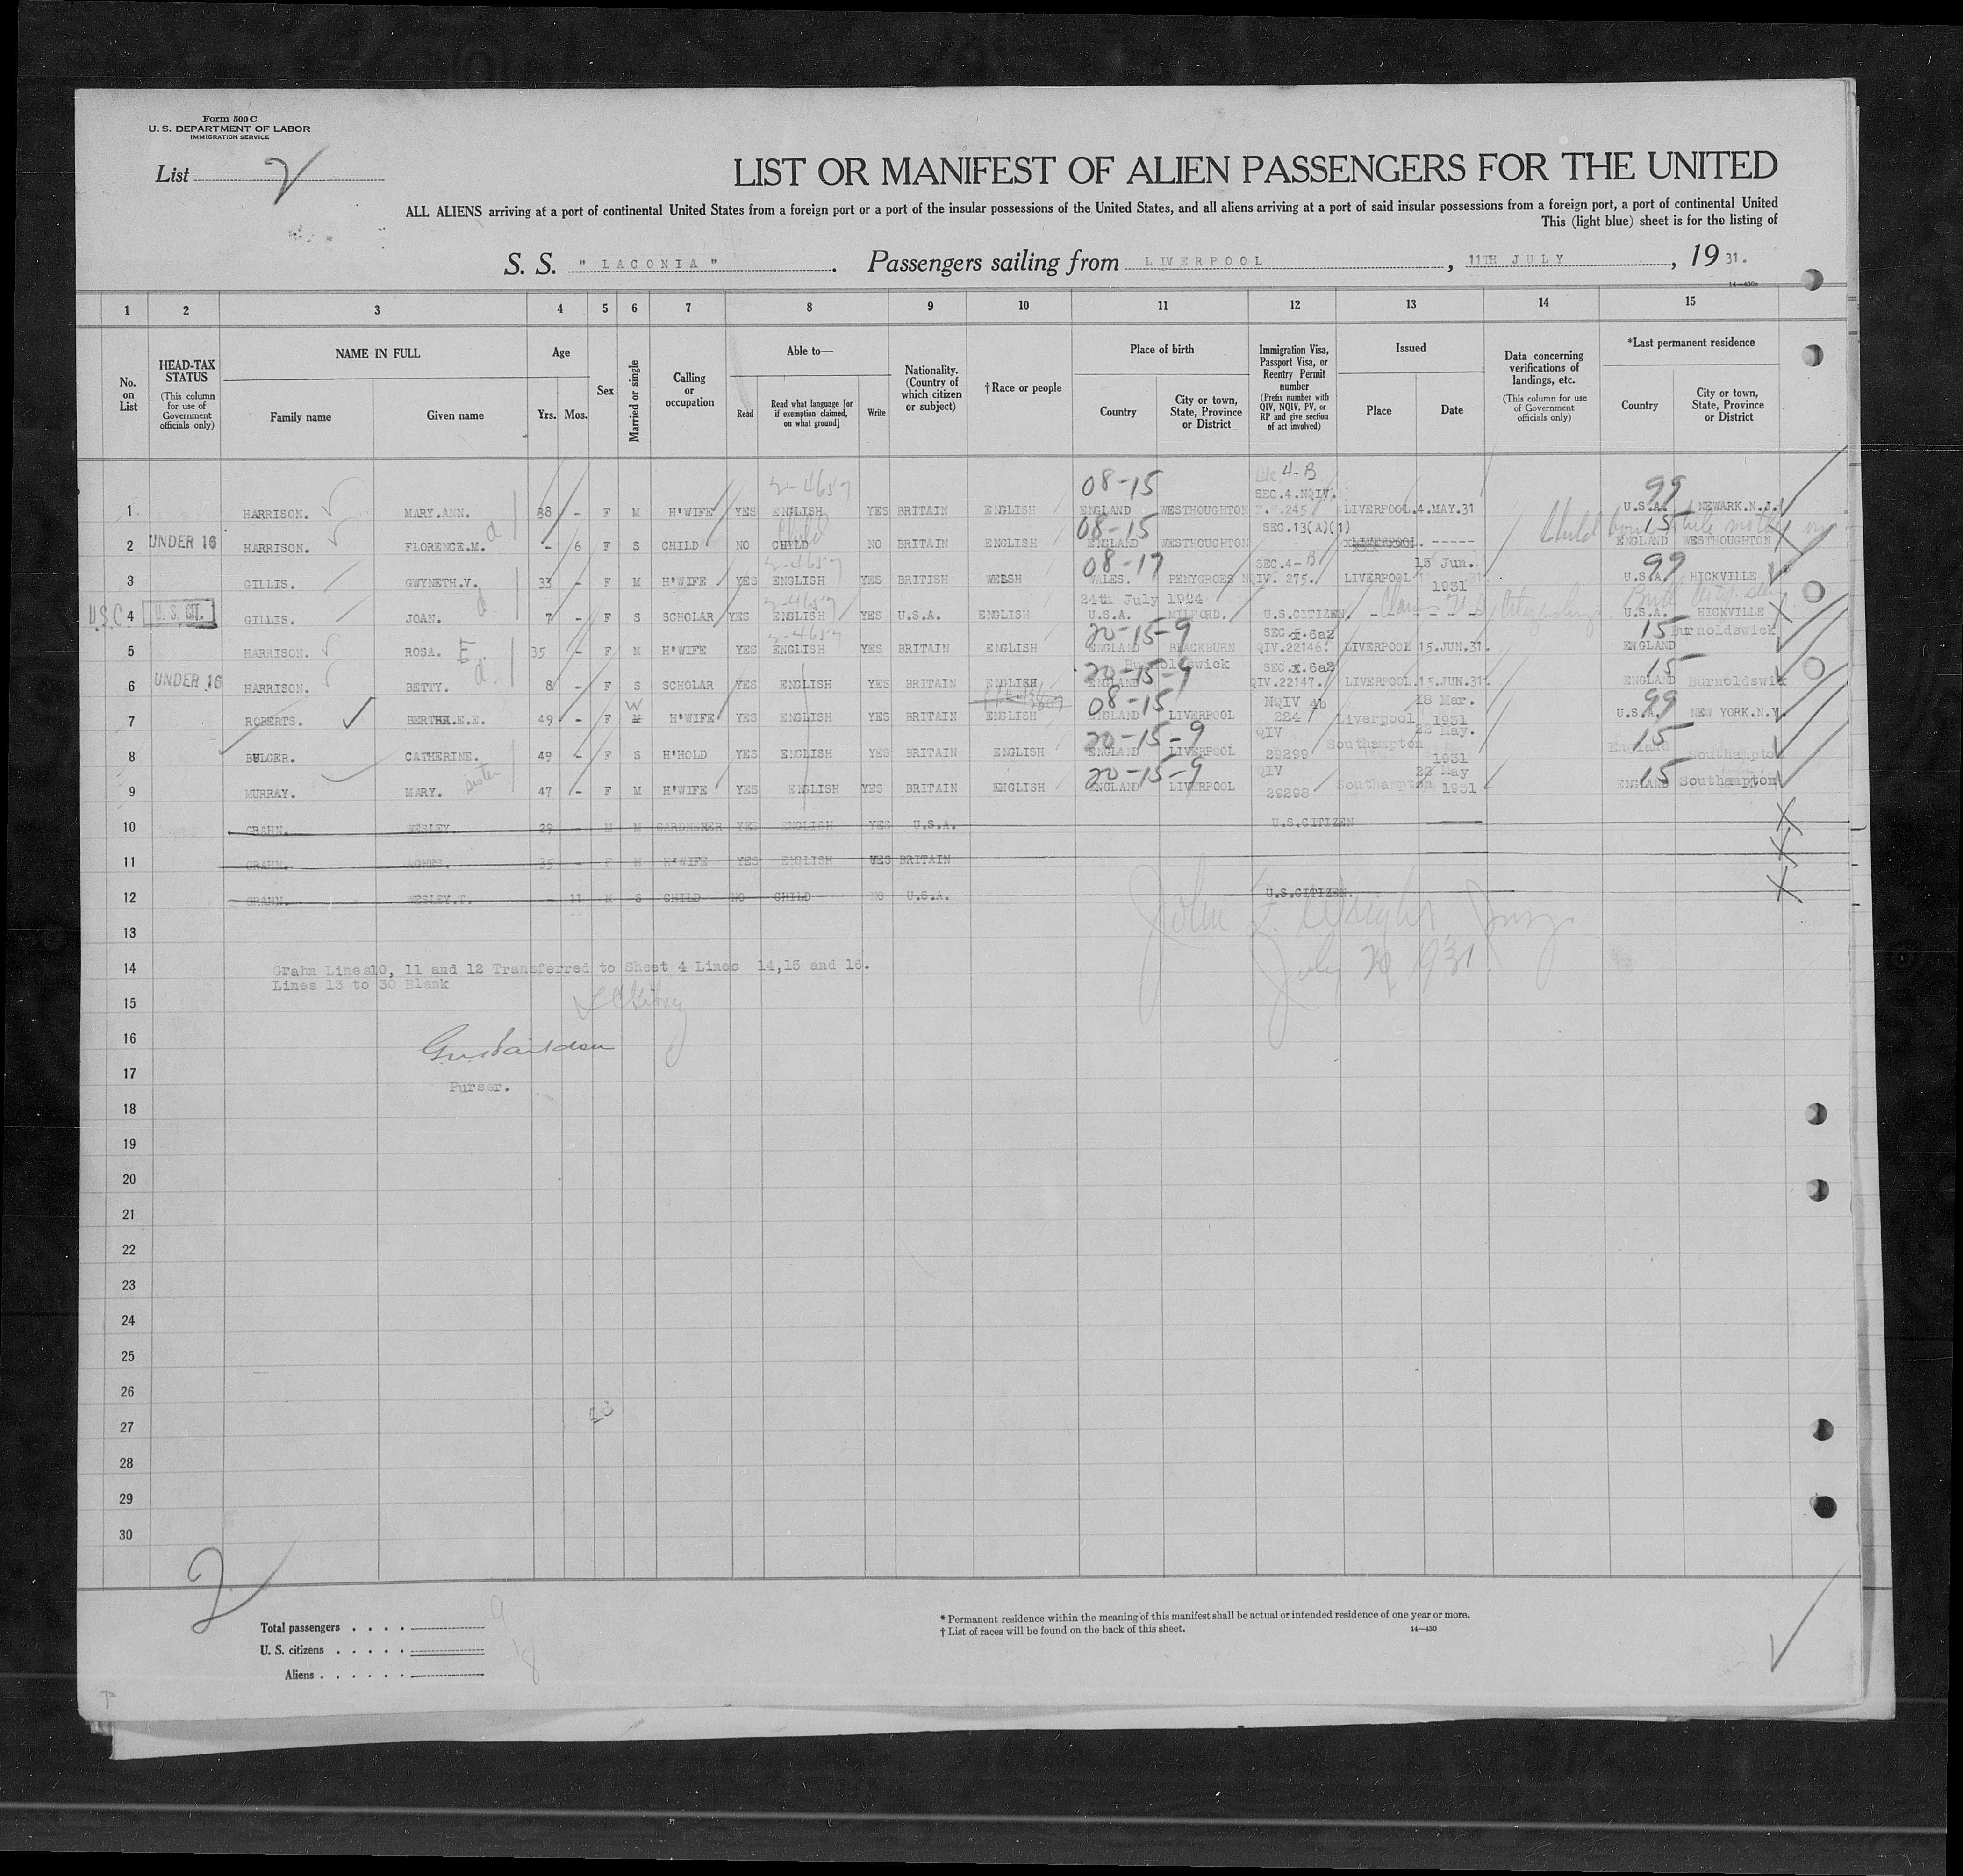 Form 500 C
U. S. DEPARTMENT OF LABOR
IMMIGRATION SERVICE
List 2
LIST OR MANIFEST OF ALIEN PASSENGERS FOR THE UNITED
ALL ALIENS arriving at a port of continental United States from a foreign port or a port of the insular possessions of the United States, and all aliens arriving at a port of said insular possessions from a foreign port, a port of continental United
This (light blue) sheet is for the listing of
S. S. "LACONIA". Passengers sailing from LIVERPOOL, 11TH JULY, 19 31.
14—430a
1 2 3 4 5 6 7 8 9 10 11 12 13 14 15
No. on List
HEAD-TAX STATUS (This column for use of Government officials only)
NAME IN FULL Family name Given name
Age Yrs. Mos.
Sex
Married or single
Calling or occupation
Able to— Read Read what language [or if exemption claimed, on what ground] Write
Nationality. (Country of which citizen or subject)
†Race or people
Place of birth Country City or town, State, Province or District
Immigration Visa, Passport Visa, or Reentry Permit number (Prefix number with QIV, NQIV, PV, or RP and give section of act involved)
Issued Place Date
Data concerning verifications of landings, etc. (This column for use of Government officials only)
*Last permanent residence Country City or town, State, Province or District
2-4657 08-15 4-B 99
SEC.4.NQIV.
1 HARRISON. MARY.ANN. 38 - F M H'WIFE YES ENGLISH YES BRITAIN ENGLISH ENGLAND WESTHOUGHTON 245 LIVERPOOL.4.MAY.31 U.S.A. NEWARK.N.J.
Child 08-15 SEC.13(A)(1) Child born 15
2 UNDER 16 HARRISON. FLORENCE.M. d - 6 F S CHILD NO CHILD NO BRITAIN ENGLISH ENGLAND WESTHOUGHTON LIVERPOOL. ----- ENGLAND WESTHOUGHTON
2-4657 08-17 SEC.4-B 13 Jun. 99
3 GILLIS. GWYNETH.V. 33 - F M H'WIFE YES ENGLISH YES BRITISH WELSH WALES. PENYGROES NQIV. 275. LIVERPOOL 1931 U.S.A. HICKVILLE
2-4657 24th July 1924
4 USC U. S. CIT. GILLIS. JOAN. d 7 - F S SCHOLAR YES ENGLISH YES U.S.A. ENGLISH U.S.A. MILFORD. U.S.CITIZEN. U.S.A. HICKVILLE
2-4657 20-15-9 SEC.x.6a2 15 Burnoldswick
5 HARRISON. ROSA. E 35 - F M H'WIFE YES ENGLISH YES BRITAIN ENGLISH ENGLAND BLACKBURN QIV.22146. LIVERPOOL 15.JUN.31. ENGLAND
20-15-9 Burnoldswick SEC.x.6a2 15
6 UNDER 16 HARRISON. BETTY. d. 8 - F S SCHOLAR YES ENGLISH YES BRITAIN ENGLISH ENGLAND QIV.22147. LIVERPOOL.15.JUN.31. ENGLAND Burnoldswik
W 08-15 NQIV 4b 18 Mar. 99
7 ROBERTS. BERTHA.E.E. 49 - F M H'WIFE YES ENGLISH YES BRITAIN ENGLISH ENGLAND LIVERPOOL 224 Liverpool 1931 U.S.A. NEW YORK.N.Y.
20-15-9 QIV 22 May. 15
8 BULGER. CATHERINE. 49 - F S H'HOLD YES ENGLISH YES BRITAIN ENGLISH ENGLAND LIVERPOOL 29299 Southampton 1931 England Southampton
sister 20-15-9 QIV 22 May 15
9 MURRAY. MARY. 47 - F M H'WIFE YES ENGLISH YES BRITAIN ENGLISH ENGLAND LIVERPOOL 29298 Southampton 1931 ENGLAND Southampton
10 GRAHN. WESLEY. 29 - M M GARDNERER YES ENGLISH YES U.S.A. U.S.CITIZEN
11 GRAHN. AGNES. 35 - F M H'WIFE YES ENGLISH YES BRITAIN
12 GRAHN. WESLEY.T. - 11 M S CHILD NO CHILD NO U.S.A. U.S.CITIZEN.
13
John F. Wright
July 20 1931
14 Grahn Lines10, 11 and 12 Transferred to Sheet 4 Lines 14,15 and 16.
Lines 13 to 30 Blank
15
16
17
Purser.
18
19
20
21
22
23
24
25
26
27
28
29
30
2
Total passengers . . . . 9
U. S. citizens . . . . . 1
Aliens . . . . . . 8
* Permanent residence within the meaning of this manifest shall be actual or intended residence of one year or more.
† List of races will be found on the back of this sheet.
14—430